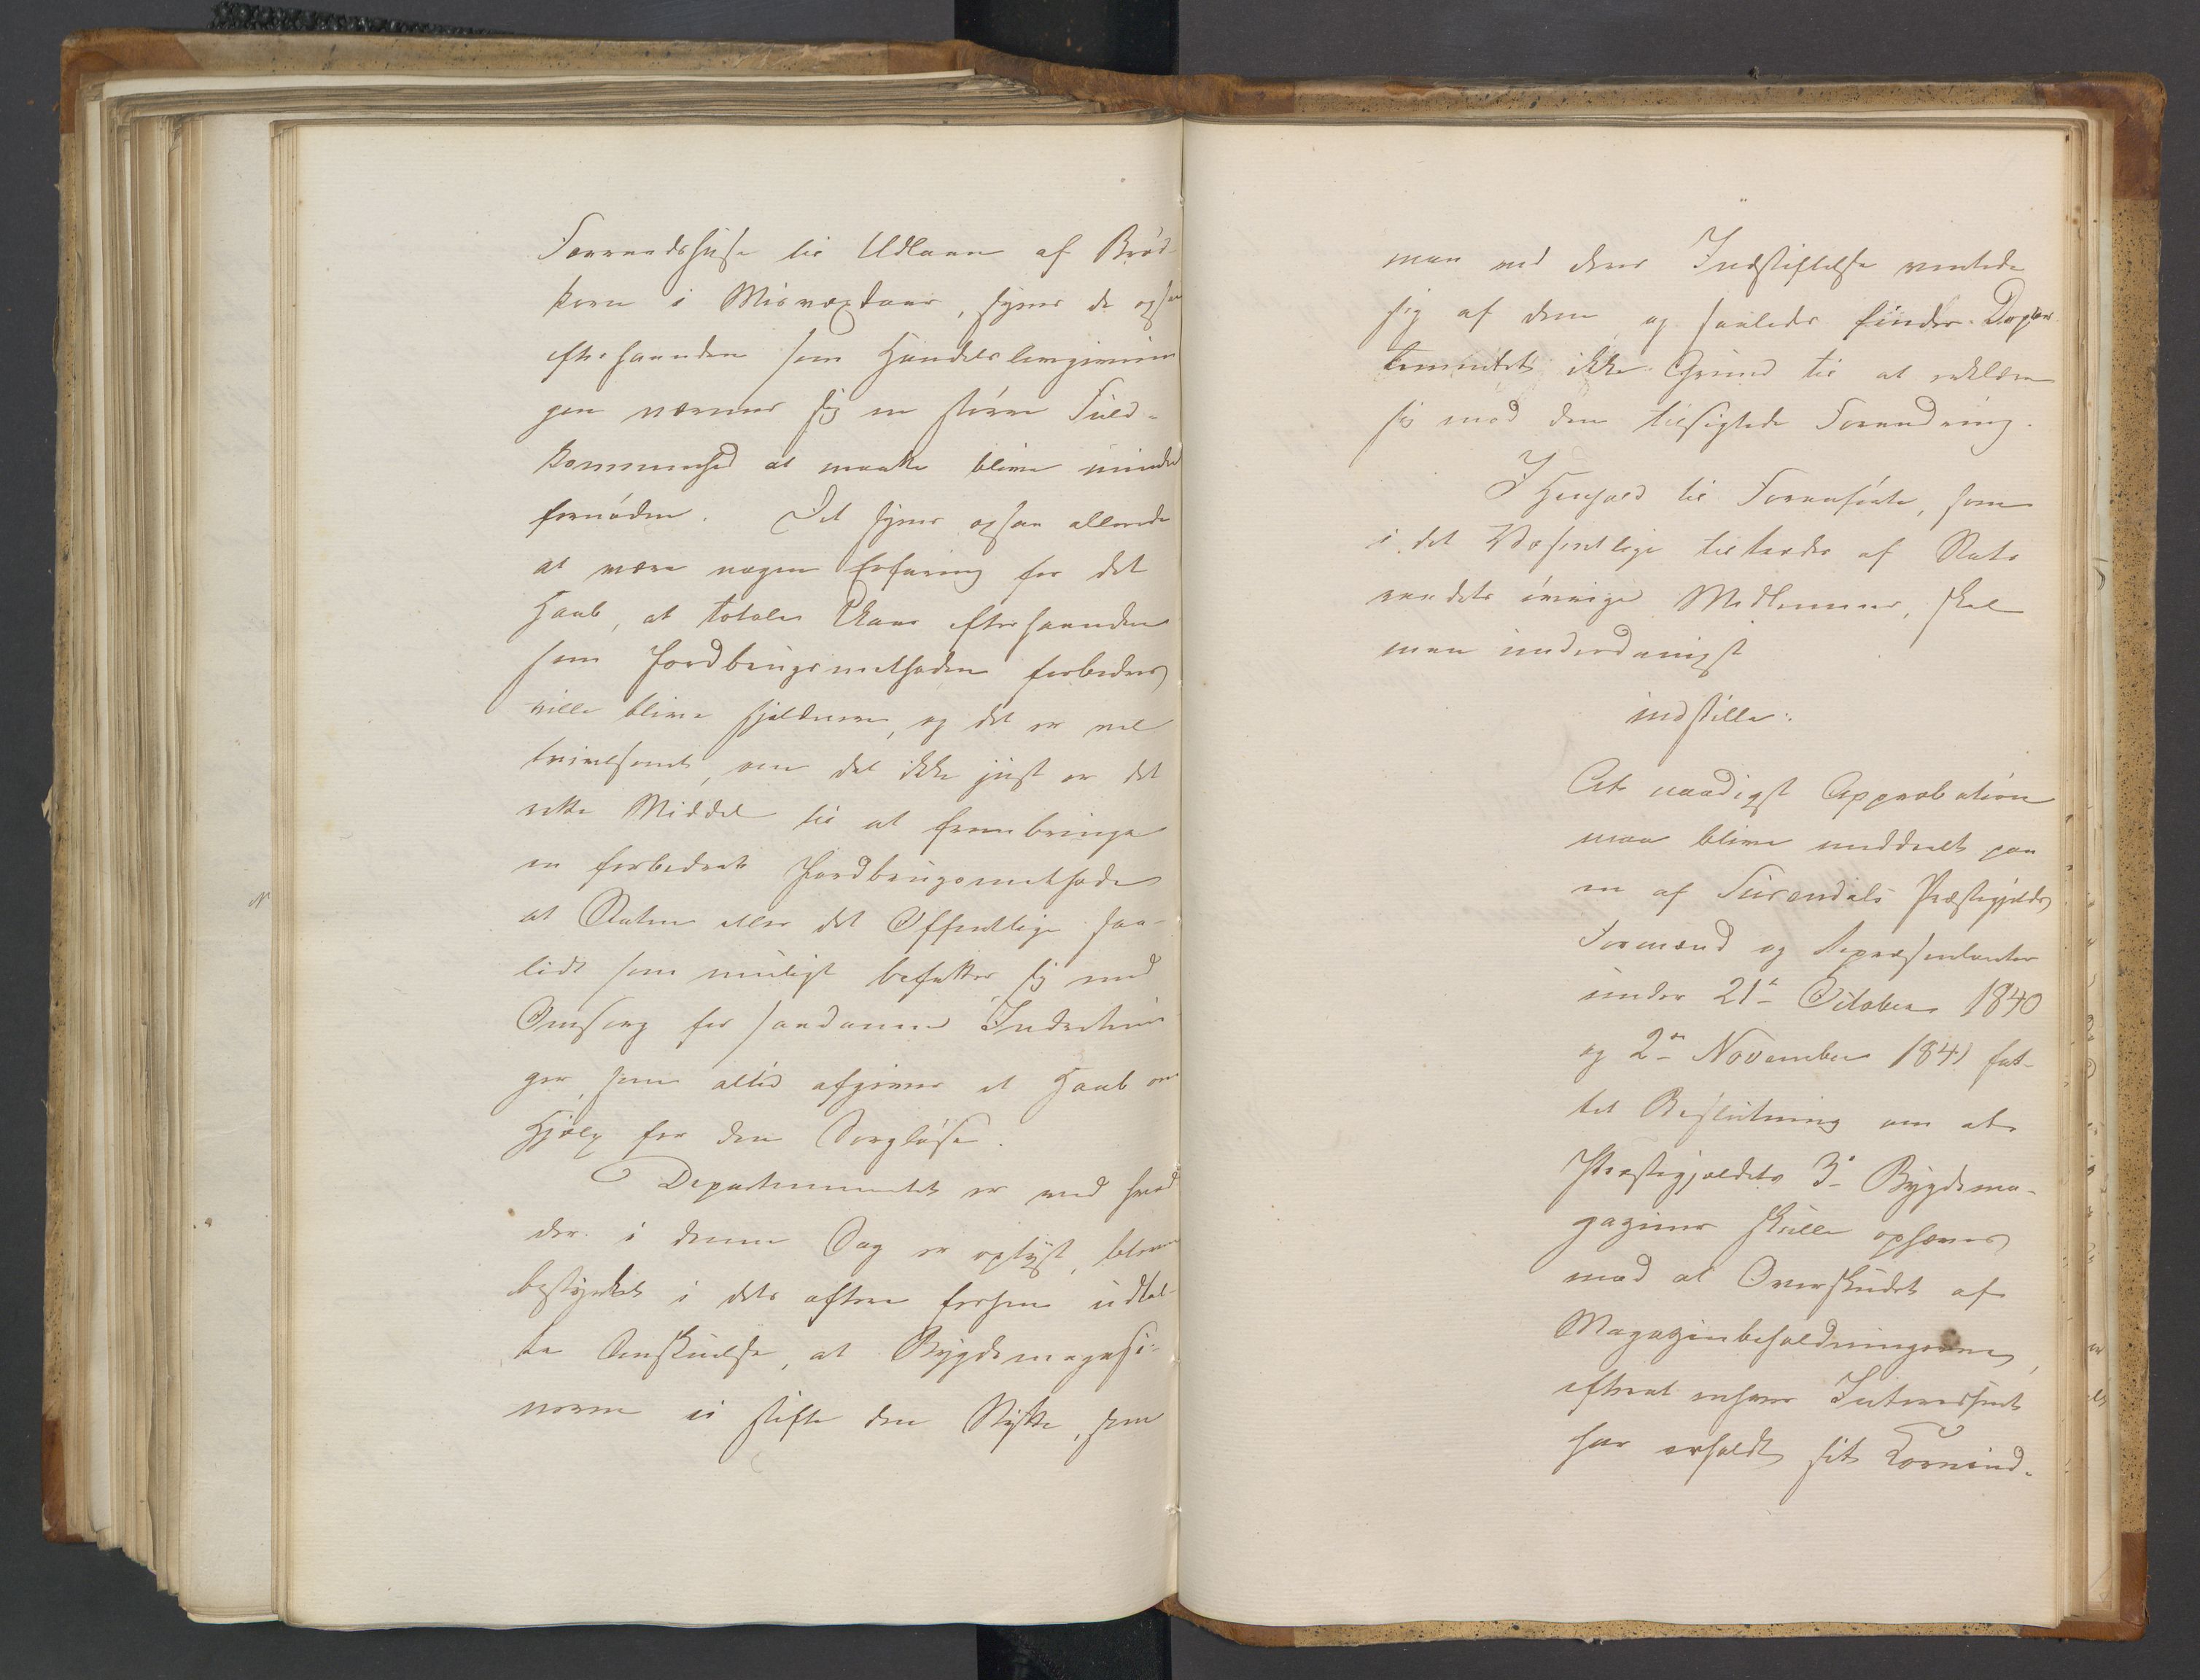 Forraadshuse til Udlaan af Brød-
korn i Misvæxtaar, synes de ogsaa
efterhaanden som Handelslovgivnin
gen nærmer sig en større Fuld-
kommenhed at maatte blive mindre
fornødne. Det synes ogsaa allerede
at være nogen Erfaring for det
Haab, at totale Uaar efterhaanden
som Jordbrugsmethoden forbedres
ville blive sjeldnere, og det er vel
tvivlsomt, om det ikke just er det
rette Middel til at frembringe
en forbedret Jordbrugsmethode
at Staten eller det Offentlige saa-
lidt som muligt befatter sig med
Omsorg for saadanne Indretnin
ger, som altid afgiver et Haab om
Hjælp for den Sorgløse.
Departementet er ved hvad
der i denne Sag er oplyst, bleven
bestyrket i dets oftere forhen udtal-
te Anskuelse, at Bygdemagasi-
nerne ei stifte den Nytte, som
man ved deres Indstiftelse ventede
sig af dem og saaledes finder Depar
tementet ikke Grund til at erklære
sig mod den tilsigtede Forandring.
I Henhold til Foranførte, som
i det Væsentlige tiltrædes af Stats
raadets øvrige Medlemmer, skal
man underdanigst
indstille:
At naadigst Approbation
maa blive meddeelt paa
en af Surendals Præstegjelds
Formænd og Repræsentanter
under 21de October 1840
og 2den November 1841 fat-
tet Beslutning om at
Præstegjeldets 3de Bygdema-
gaziner skulle ophæves
mod at Overskudet af
Magazinbeholdningerne,
efterat enhver Interessent
har erholdt sit Kornind-